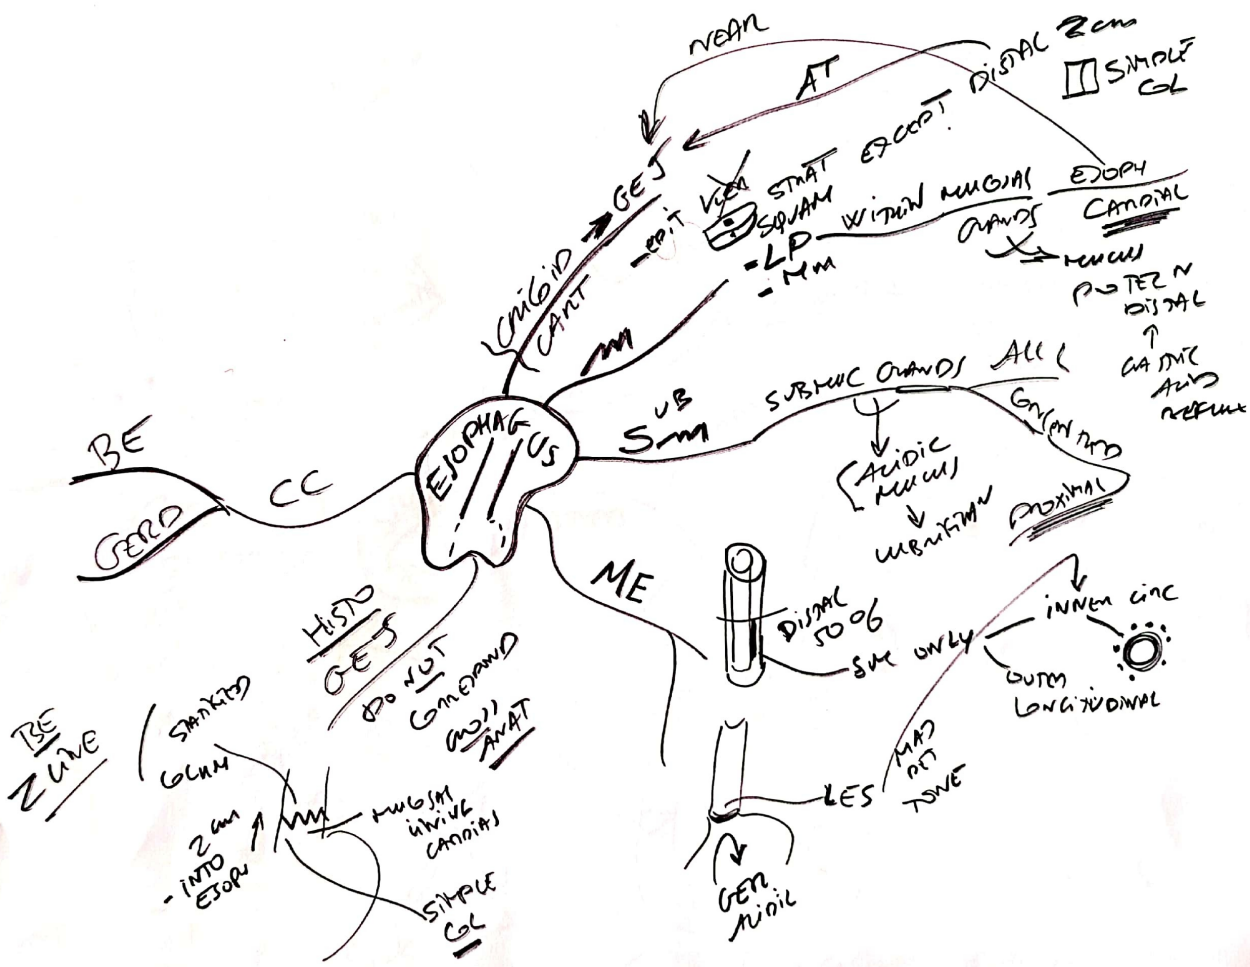 NEAR
AT
DISTAL 2 cm
SIMPLE
COL
EXCEPT
GEJ
CRICOID
CART
- EPIT
STRAT
SQUAM
- LP
- MM
WITHIN MUCOSAL
GLANDS
ESOPH
CARDIAL
MUCUS
PROTECN
DISTAL
GASTRIC
ACID
REFLUX
M
ESOPHAGUS
SUB
M
SUBMUC GLANDS
ALL L
PROXIMAL
ACIDIC
MUCUS
BE
GERD
CC
ME
DISTAL
50 %
SM ONLY
INNER CIRC
OUTER
LONGITUDINAL
LES
MAJ
DET
TONE
GER
ACIDIC
HISTO
GEJ
DO NOT
CORRESPOND
GROSS
ANAT
BE
Z LINE
STRATIFIED
2 cm
- INTO
ESOPH
MUCOSAL
LINING
CARDIAS
SIMPLE
COL